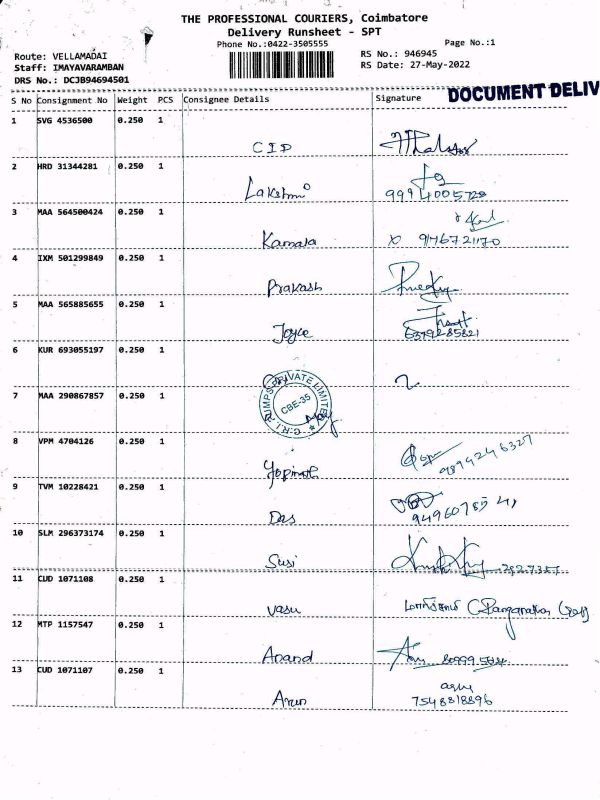 THE PROFESSIONAL COURIERS, Coimbatore
Delivery Runsheet - SPT
Phone No.:0422-3505555
Page No.:1
Route: VELLAMADAI
Staff: IMAYAVARAMBAN
DRS No.: DCJB94694501
RS No.: 946945
RS Date: 27-May-2022
S No Consignment No Weight PCS Consignee Details Signature
DOCUMENT DELIV
1 SVG 4536500 0.250 1
CIP
2 HRD 31344281 0.250 1
Lakshmi 9994005728
3 MAA 564500424 0.250 1
Kamala 9146721170
4 IXM 501299849 0.250 1
Prakash
5 MAA 565885655 0.250 1
Joyce 6379285821
6 KUR 693055197 0.250 1
C.R.I. PUMPS PRIVATE LIMITED
CBE-35
7 MAA 290867857 0.250 1
8 VPM 4704126 0.250 1
Gopinath 9894246327
9 TVM 10228421 0.250 1
Das
10 SLM 296373174 0.250 1
Susi
11 CUD 1071108 0.250 1
Vasu
12 MTP 1157547 0.250 1
Anand
13 CUD 1071107 0.250 1
Arun 7548818896